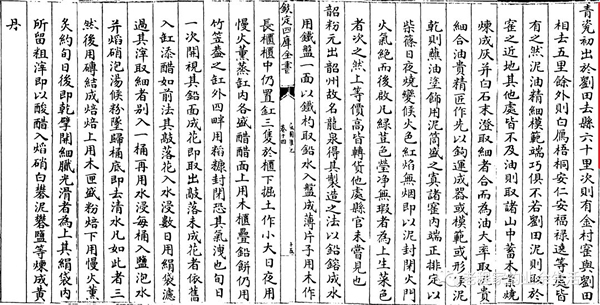 青瓷初出於劉田去縣六十里次則有金村窰與劉田
相去五里餘外則白雁梧桐安仁安福祿遶等處皆
有之然泥油精細模範端巧俱不若劉田泥則取於
窰之近地其他處皆不及油則取諸山中蓄木葉燒
煉成灰并白石末澄取細者合而為油大率取泥貴
細合油貴精匠作先以鈎運成器或模範成形候泥
乾則蘸油塗飾用泥筒盛之寘諸窰內端正排定以
柴篠日夜燒變候火色紅焰無烟即以泥封閉火門
火氣絕而後啟凡綠荳色瑩淨無瑕者為上生菜色
者次之然上等價高皆轉貨他處縣官未嘗見也
韶粉元出韶州故名龍泉得其製造之法以鉛鎔成水
欽定四庫全書
卷十四
用鐵盤一面以鐵杓取鉛水入盤成薄片子用木作
長櫃櫃中仍置缸三隻於櫃下掘土作小火日夜用
慢火薰蒸缸內各盛醋醋面上用木櫃疊鉛餅仍用
竹笠蓋之缸外四畔用稻糠封閉恐其氣洩也旬日
一次開視其鉛面成花即取出敲落未成花者依舊
入缸添醋如前法其敲落花入水浸數日用絹袋濾
過其滓取細者別入一桶再用水浸每桶入鹽泡水
并焰硝泡湯候粉墜歸桶底即去清水凡如此者三
然後用磚結成焙焙上用木匣盛粉焙下用慢火薰
炙約旬日後即乾擘開細膩光滑者為上其絹袋內
所留粗滓即以酸醋入焰硝白礬泥礬鹽等煉成黃
丹